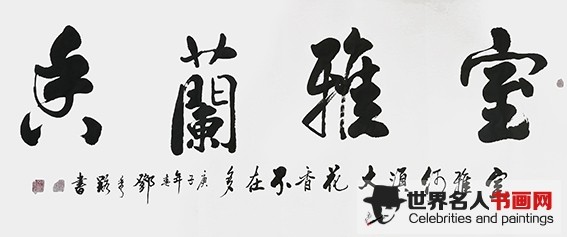 室雅蘭香
室雅何須大花香不在多庚子年鄧書
世界名人书画网
Celebrities and paintings